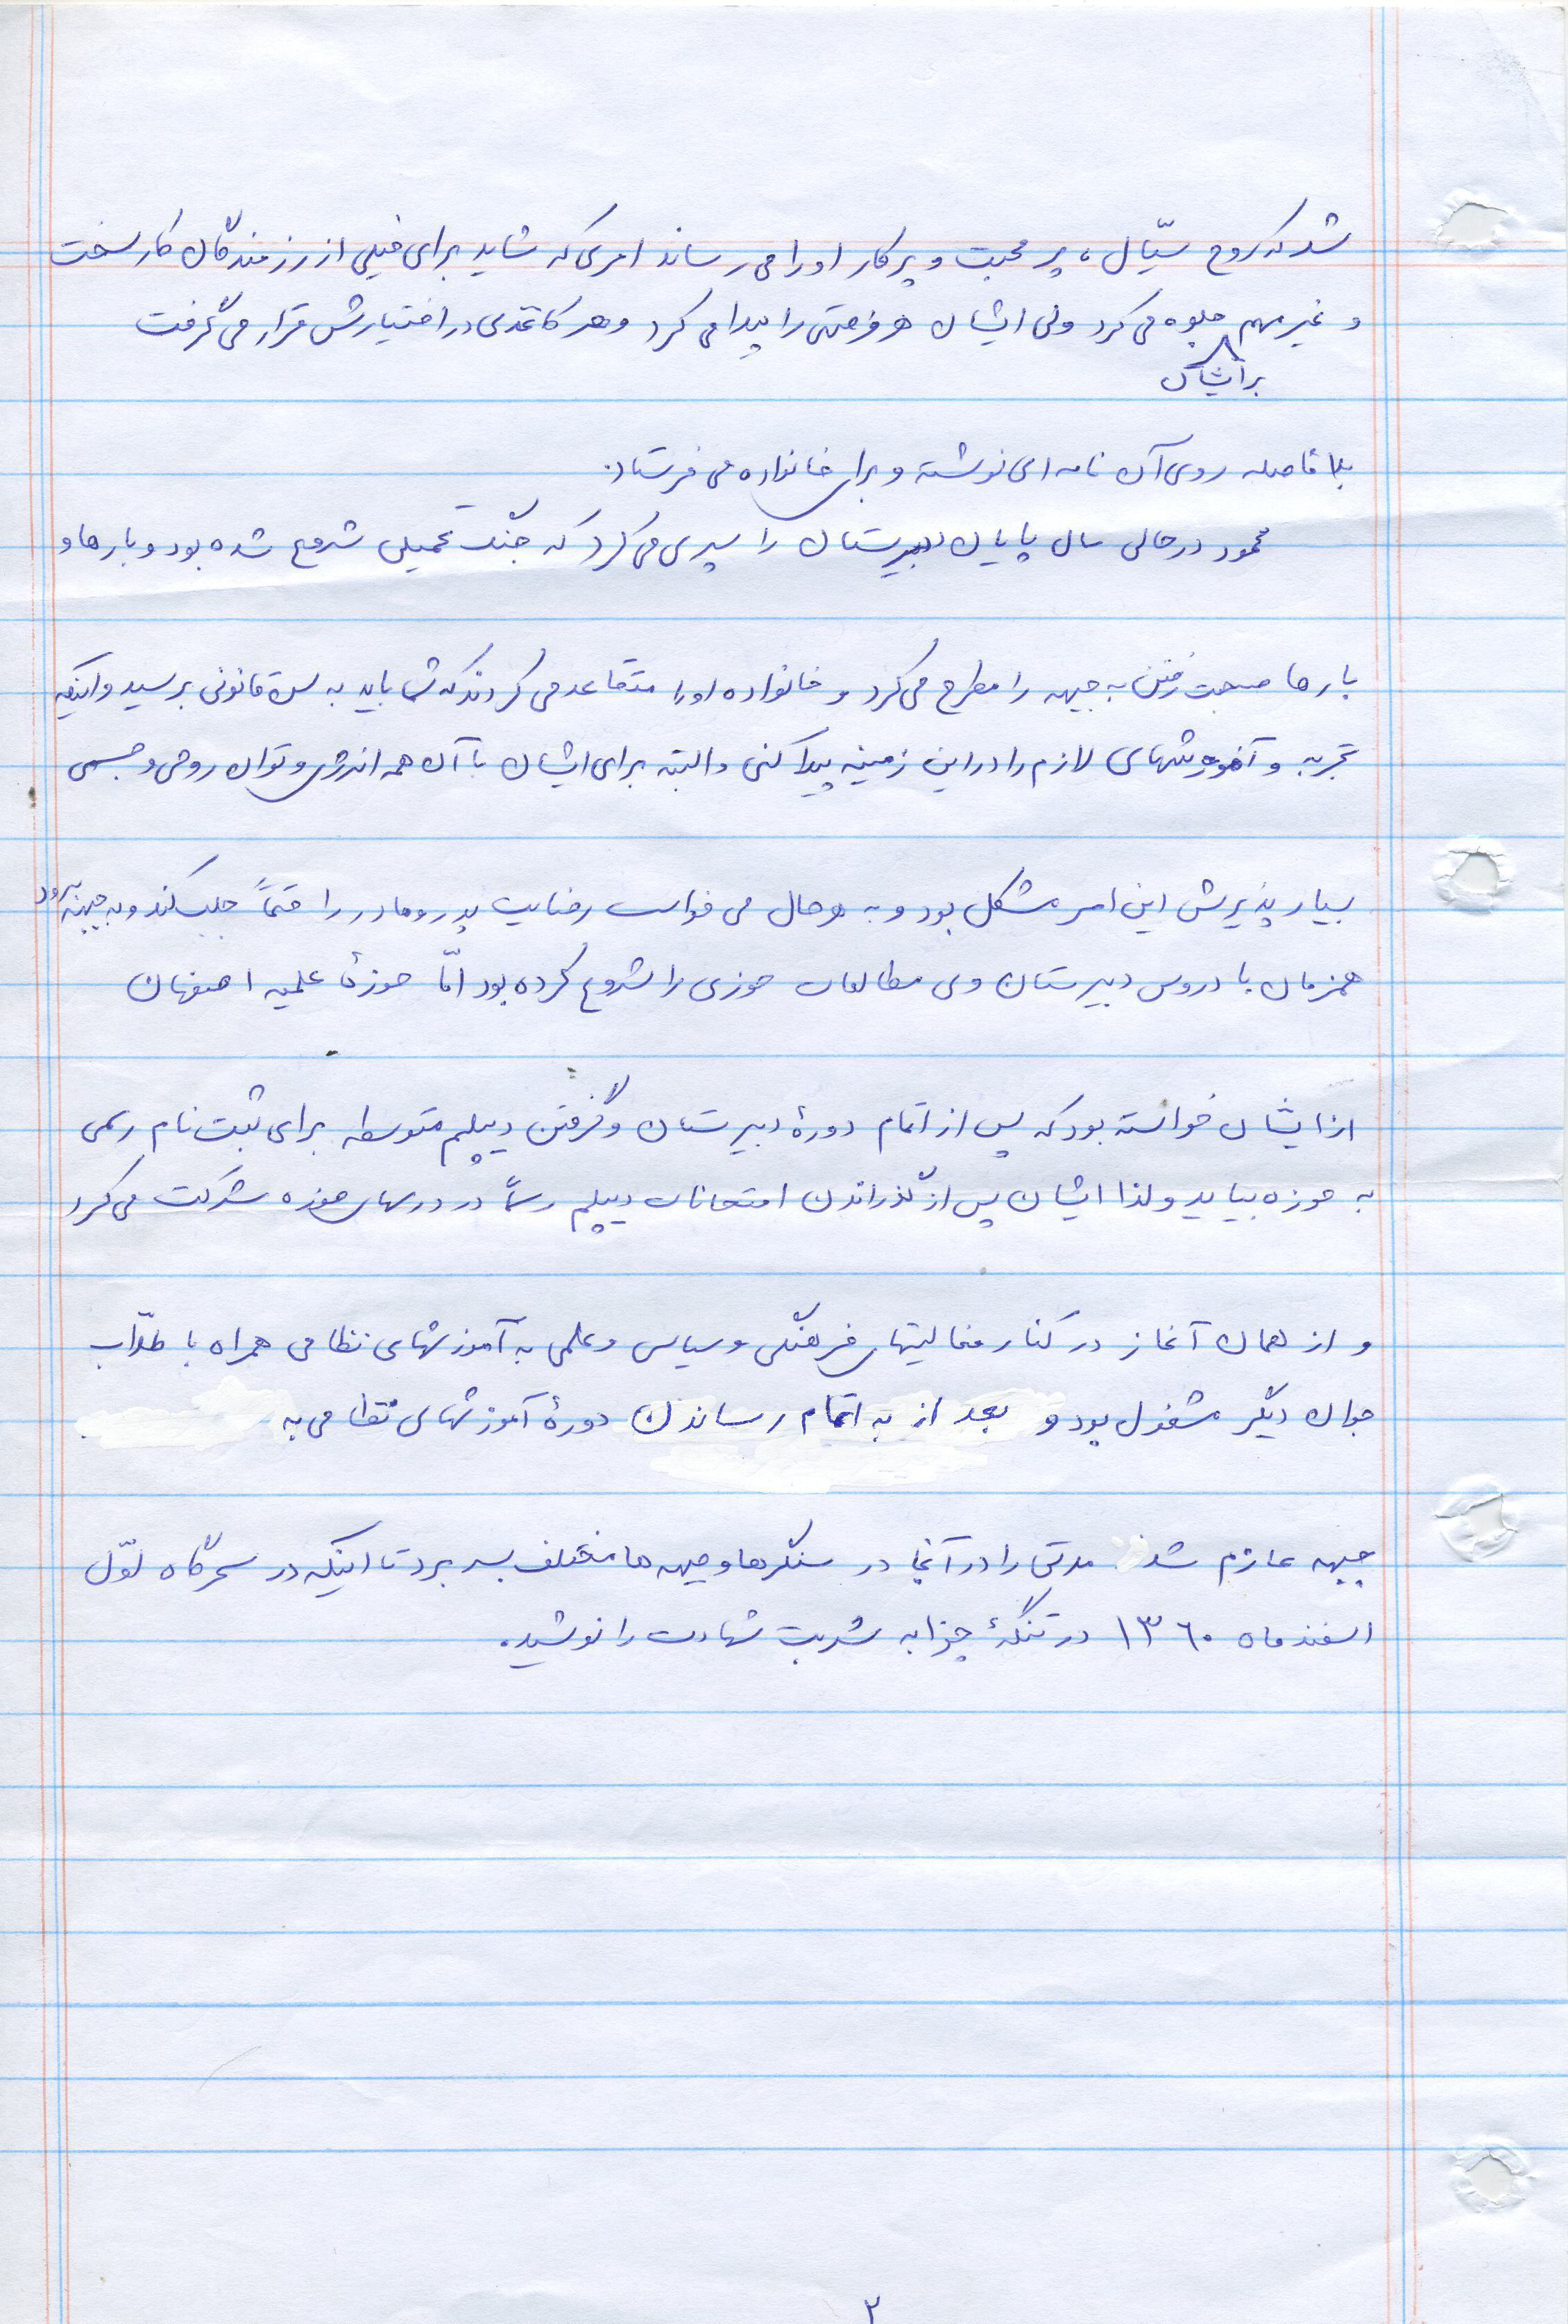 شد که روح سیّال، پر محبت و پرکار او را می رساند امری که شاید برای خیلی از رزمندگان کار سخت
و غیر مهم جلوه می کرد ولی ایشان هر فرصتی را پیدا می کرد و هر کاغذی در اختیارش قرار می گرفت
برایشان
بلافاصله روی آن نامه ای نوشته و برای خانواده می فرستاد.
محمود در حالی سال پایان دبیرستان را سپری می کرد که جنگ تحمیلی شروع شده بود و بارها و
بارها صحبت رفتن به جبهه را مطرح می کرد و خانواده او را متقاعد می کردند که شما باید به سن قانونی برسید و اینکه
تجربه و آموزشهای لازم را در این زمینه پیدا کنی و البته برای ایشان با آن همه انرژی و توان روحی و جسمی
بسیار پذیرش این امر مشکل بود و به هر حال می خواست رضایت پدر و مادر را حتماً جلب کند و به جبهه برود
همزمان با دروس دبیرستان وی مطالعات حوزی را شروع کرده بود امّا حوزهٔ علمیه اصفهان
از ایشان خواسته بود که پس از اتمام دورهٔ دبیرستان و گرفتن دیپلم متوسطه برای ثبت نام رسمی
به حوزه بیاید ولذا ایشان پس از گذراندن امتحانات دیپلم رسماً در درسهای حوزه شرکت می کرد
و از همان آغاز در کنار فعالیتهای فرهنگی و سیاسی و علمی به آموزشهای نظامی همراه با طلّاب
جوان دیگر مشغول بود و بعد از به اتمام رساندن دورهٔ آموزشهای نظامی به
جبهه عازم شد. مدتی را در آنجا در سنگرها و جبهه ها مختلف بسر برد تا اینکه در سحرگاه اوّل
اسفند ماه ۱۳۶۰ در تنگهٔ چزابه شربت شهادت را نوشید.
۲